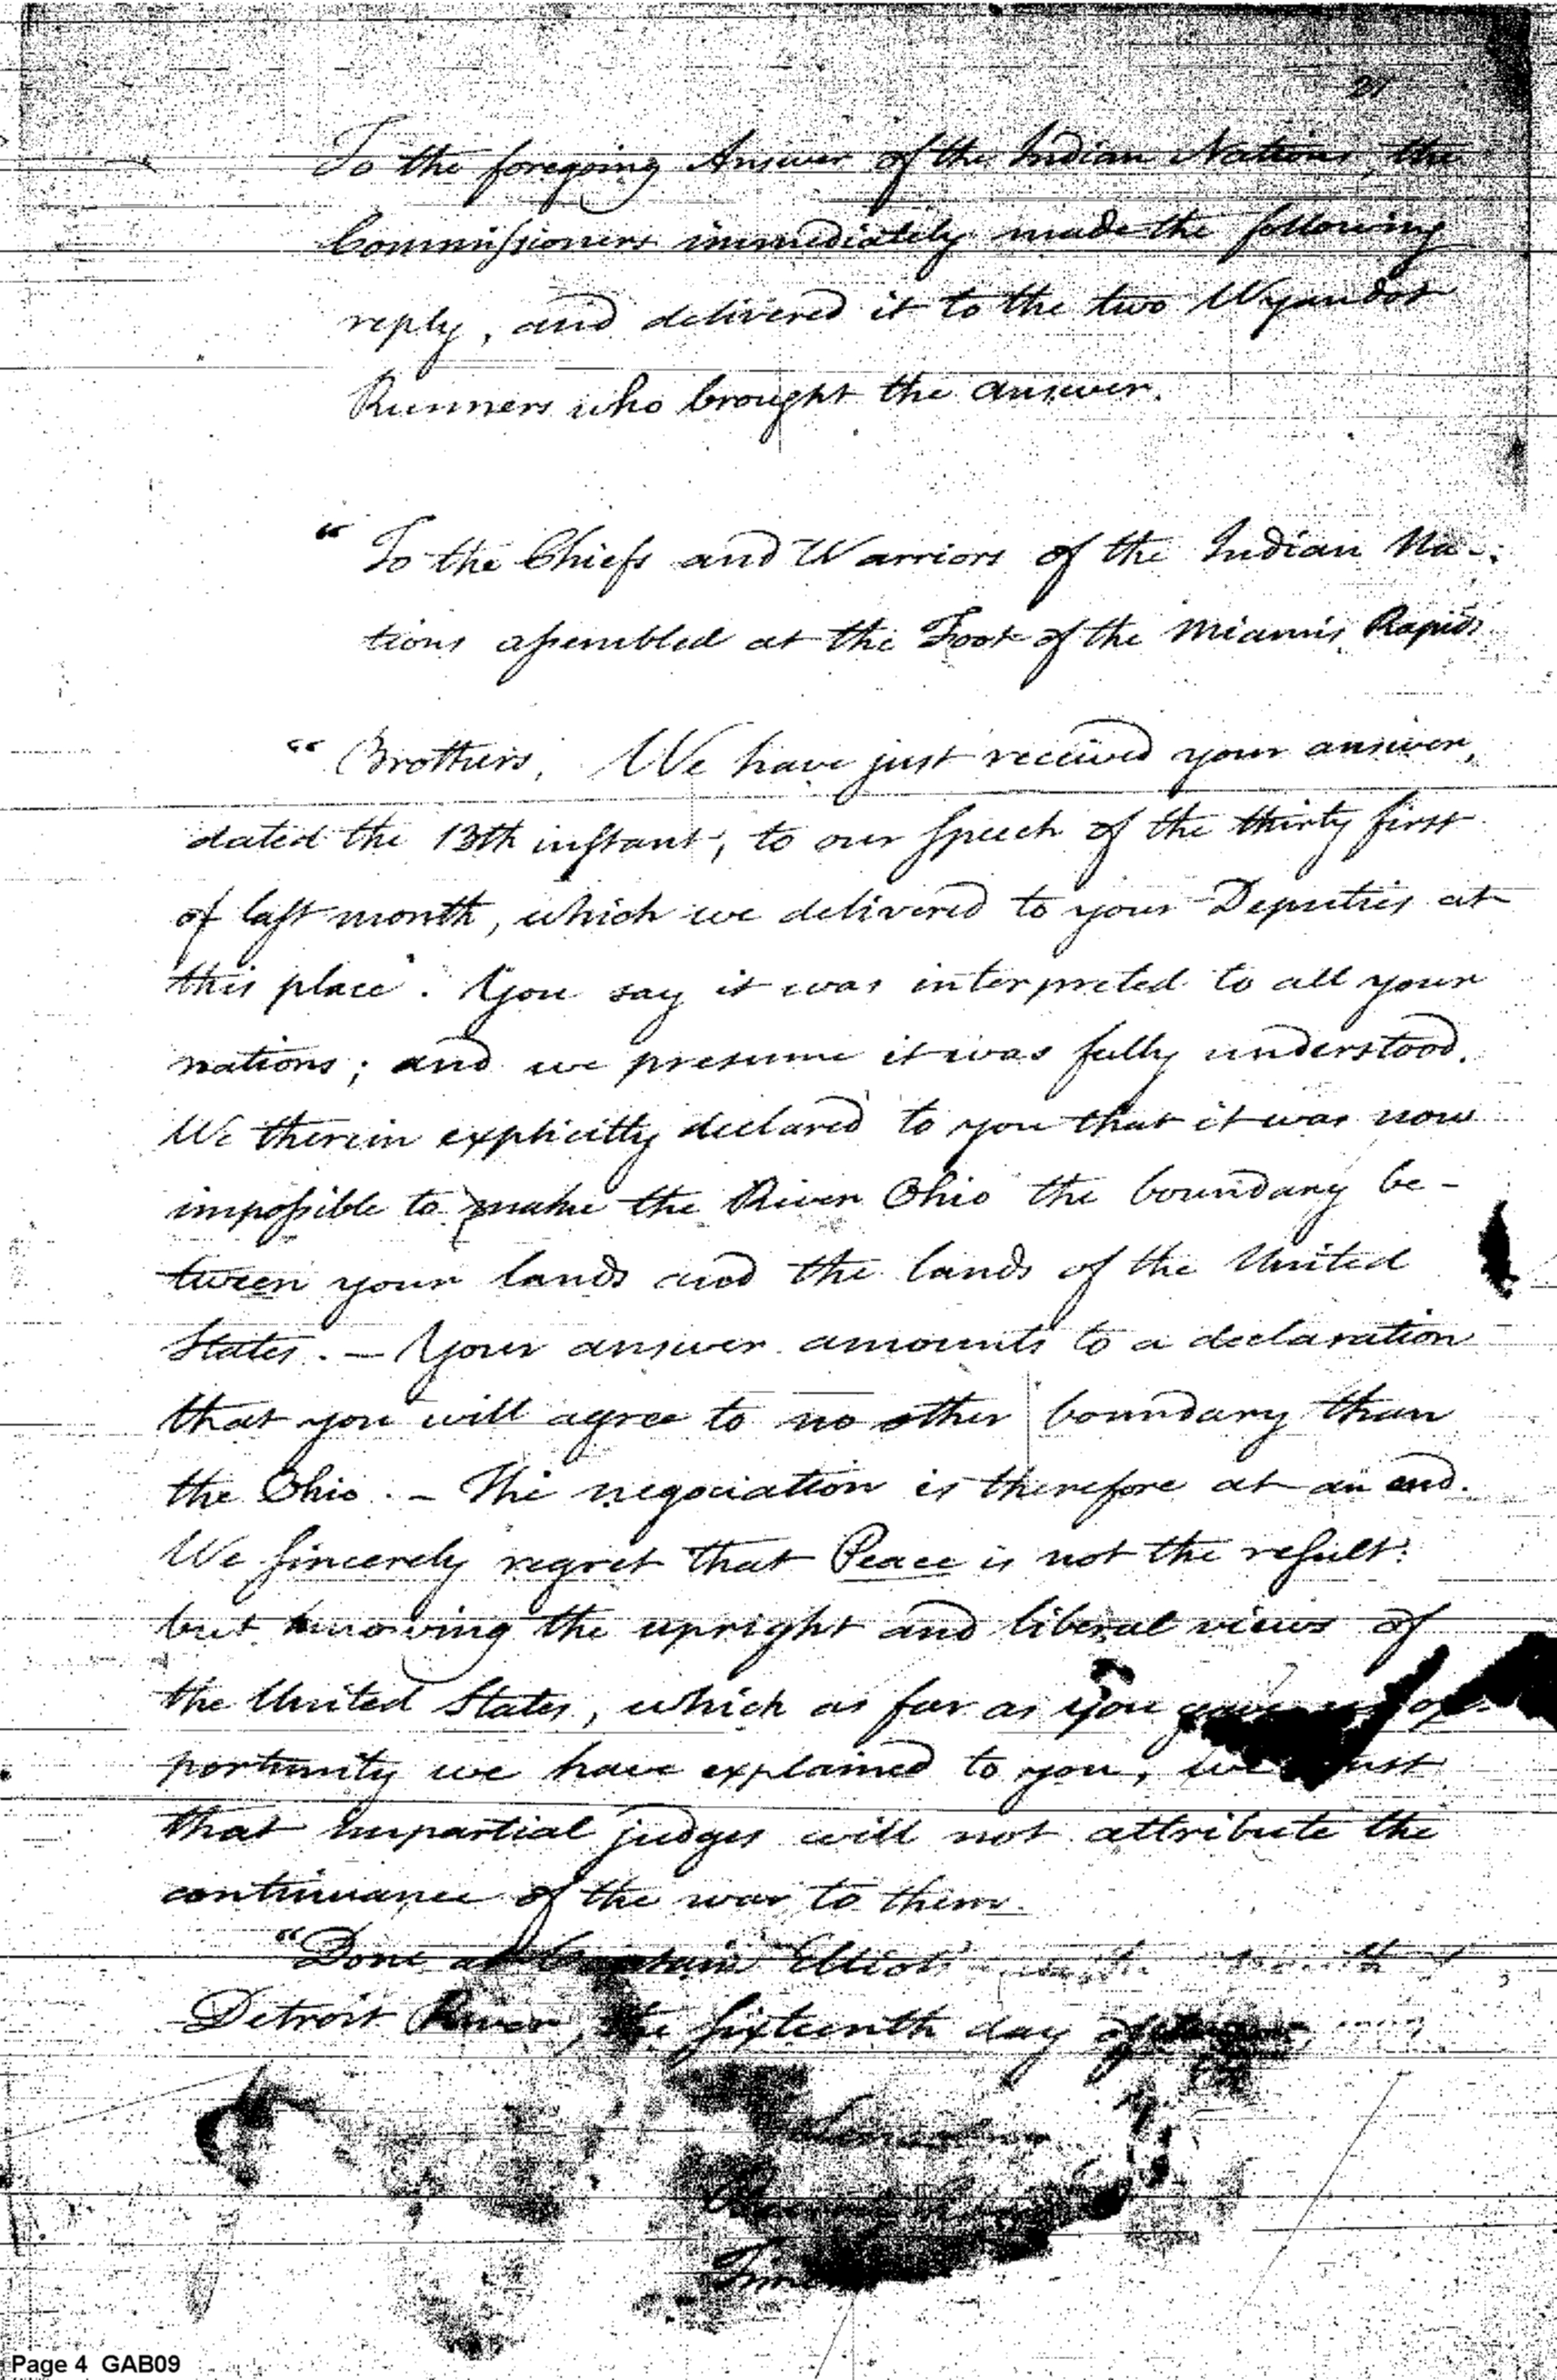 21
To the foregoing Answer of the Indian Nations, the
Commissioners immediately made the following
reply, and delivered it to the two Wyandot
Runners who brought the answer.
“ To the Chiefs and Warriors of the Indian Na-
tions assembled at the Foot of the Miamis Rapids
“ Brothers, We have just received your answer,
dated the 13th instant, to our speech of the thirty first
of last month, which we delivered to your Deputies at
this place. You say it was interpreted to all your
nations; and we presume it was fully understood.
We therein explicitly declared to you that it was now
impossible to make the River Ohio the boundary be-
tween your lands and the lands of the United
States. — Your answer amounts to a declaration
that you will agree to no other boundary than
the Ohio. — The negociation is therefore at an end.
We sincerely regret that Peace is not the result:
but knowing the upright and liberal views of
the United States, which as far as you gave us op-
portunity we have explained to you, we trust
that impartial judges will not attribute the
continuance of the war to them.
“Done at Captain Elliot's
Detroit River, the sixteenth day of
Page 4 GAB09